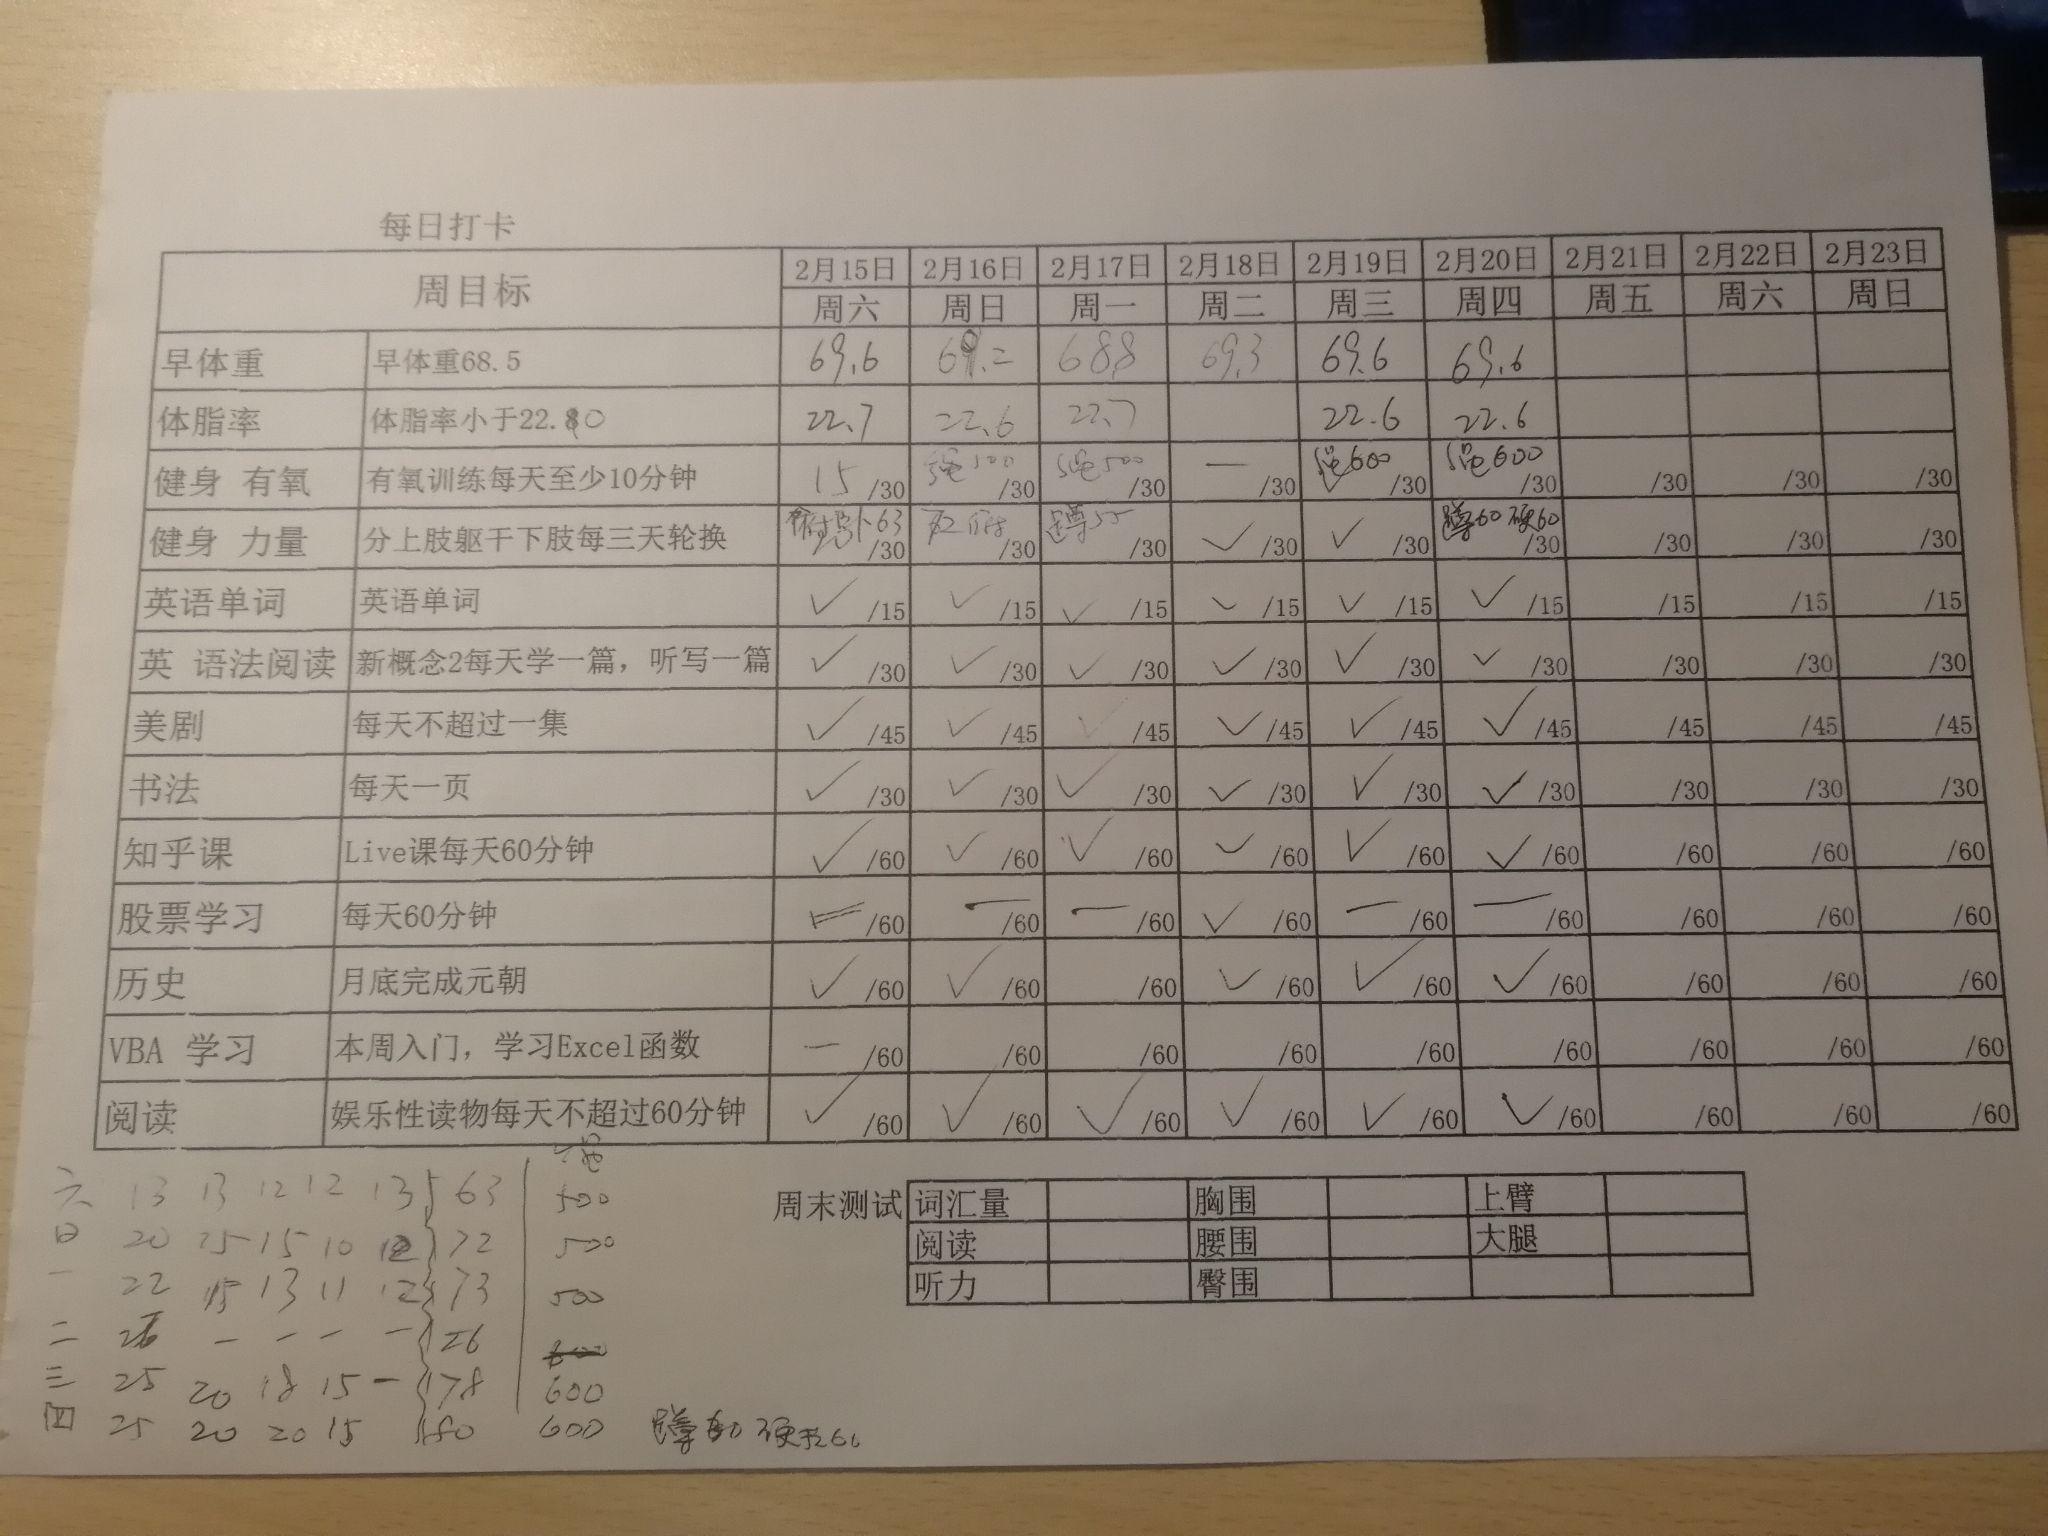 每日打卡
周目标 2月15日 2月16日 2月17日 2月18日 2月19日 2月20日 2月21日 2月22日 2月23日
周六 周日 周一 周二 周三 周四 周五 周六 周日
早体重 早体重68.5 69.6 69.2 68.8 69.3 69.6 69.6
体脂率 体脂率小于22.0 22.7 22.6 22.7 22.6 22.6
健身 有氧 有氧训练每天至少10分钟 15 /30 绳500 /30 绳500 /30 — /30 绳600 /30 绳600 /30 /30 /30 /30
健身 力量 分上肢躯干下肢每三天轮换 63 /30 /30 蹲55 /30 ✓ /30 ✓ /30 蹲60 硬60 /30 /30 /30 /30
英语单词 英语单词 ✓ /15 ✓ /15 ✓ /15 ✓ /15 ✓ /15 ✓ /15 /15 /15 /15
英 语法阅读 新概念2每天学一篇，听写一篇 ✓ /30 ✓ /30 ✓ /30 ✓ /30 ✓ /30 ✓ /30 /30 /30 /30
美剧 每天不超过一集 ✓ /45 ✓ /45 ✓ /45 ✓ /45 ✓ /45 ✓ /45 /45 /45 /45
书法 每天一页 ✓ /30 ✓ /30 ✓ /30 ✓ /30 ✓ /30 ✓ /30 /30 /30 /30
知乎课 Live课每天60分钟 ✓ /60 ✓ /60 ✓ /60 ✓ /60 ✓ /60 ✓ /60 /60 /60 /60
股票学习 每天60分钟 /60 — /60 — /60 ✓ /60 — /60 — /60 /60 /60 /60
历史 月底完成元朝 ✓ /60 ✓ /60 /60 ✓ /60 ✓ /60 ✓ /60 /60 /60 /60
VBA 学习 本周入门，学习Excel函数 — /60 /60 /60 /60 /60 /60 /60 /60 /60
阅读 娱乐性读物每天不超过60分钟 ✓ /60 ✓ /60 ✓ /60 ✓ /60 ✓ /60 ✓ /60 /60 /60 /60
绳
六 13 13 12 12 13 } 63 500
日 20 15 15 10 12 } 72 500
一 22 15 13 11 12 } 73 500
二 26 — — — — } 26
三 25 20 18 15 — } 78 600
四 25 20 20 15 } 80 600 蹲
周末测试 词汇量 胸围 上臂
阅读 腰围 大腿
听力 臀围